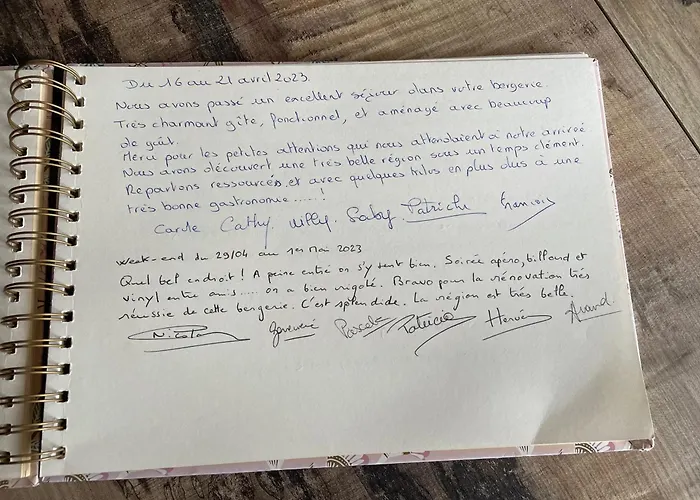 Du 16 au 21 avril 2023.
Nous avons passé un excellent séjour dans votre bergerie.
Très charmant gîte, fonctionnel, et aménagé avec beaucoup
de goût.
Merci pour les petites attentions qui nous attendaient à notre arrivée
Nous avons découvert une très belle région sous un temps clément.
Repartons ressourcés, et avec quelques kilos en plus dus à une
très bonne gastronomie.....!
Carole Cathy. Willy. Gaby. Patrick François
Week-end du 29/04 au 1er Mai 2023
Quel bel endroit ! A peine entré on s'y sent bien. Soirée apéro, billard et
vinyl entre amis..... on a bien rigolé. Bravo pour la rénovation très
réussie de cette bergerie. C'est splendide. La région est très belle.
Nicolas Pascale Patricia Hervé